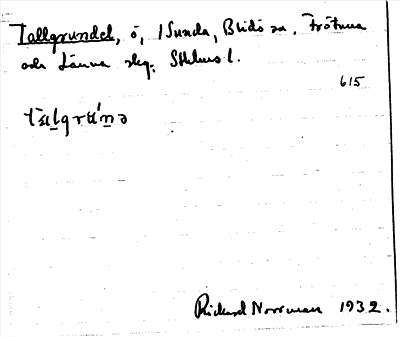 Tallgrundet, ö, i Sunda, Blidö sn. Frötuna
och Länna skg. Sthlms l.
615
Rickard Norrman 1932.